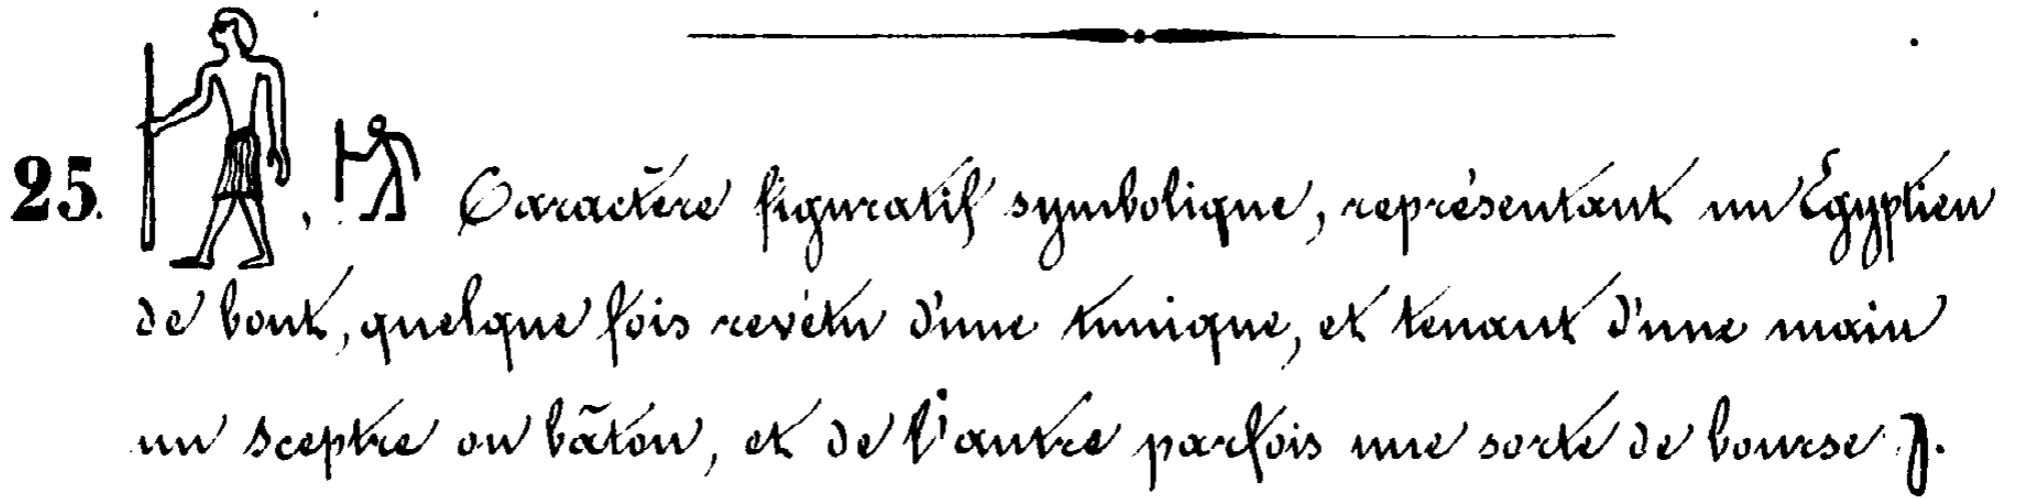 25. , Caractère figuratif symbolique, représentant un Égyptien
de bout, quelque fois revétu d'une tunique, et tenant d'une main
un sceptre ou bâton, et de l'autre parfois une sorte de bourse .